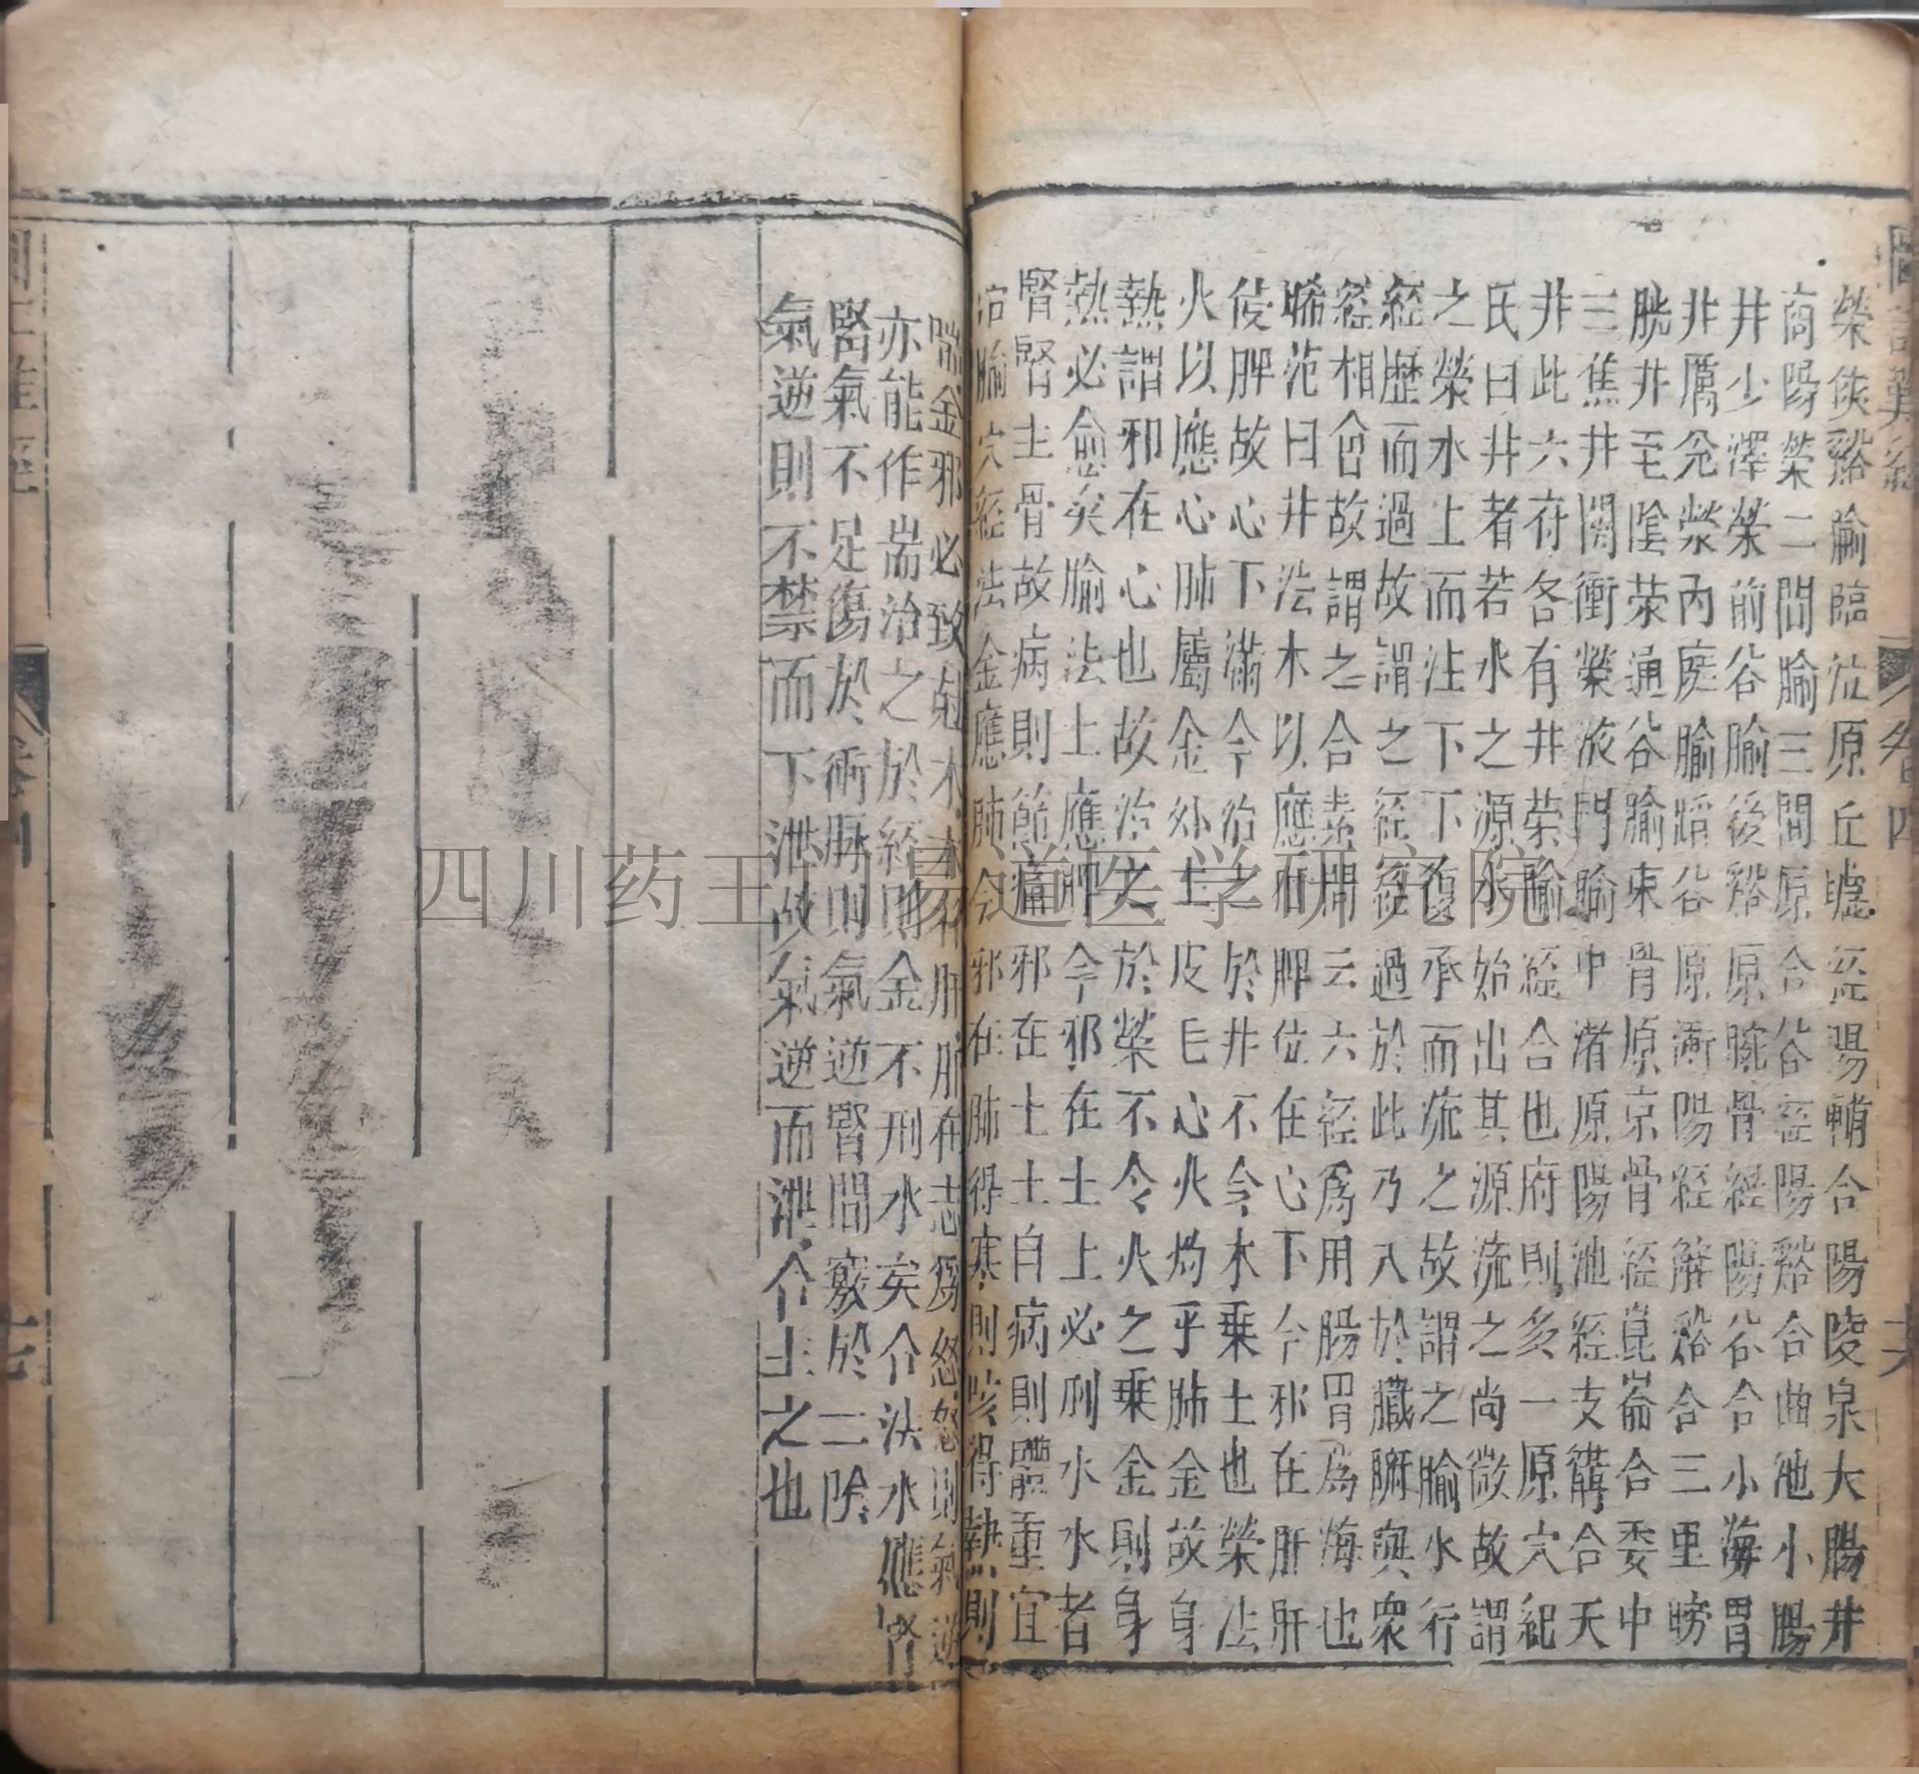 滎俠谿腧臨泣原丘墟經陽輔合陽陵泉大腸井
商陽滎二間腧三間原合谷經陽谿合曲池小腸
井少澤滎前谷腧後谿原腕骨經陽谷合小海胃
井厲兊滎內庭腧蹈谷原衝陽經解谿合三里膀
胱井至陰滎通谷腧束骨原京骨經崑崙合委中
三焦井關衝滎液門腧中渚原陽池經支溝合天
井此六府各有井滎腧經合也府則亥一原穴紀
氏曰井者若水之源水始出其源流之尚微故謂
之滎水上而注下下復承而流之故謂之腧水行
經歷而過故謂之經經過於此乃入於臟腑與衆
經相會故謂之合素問云六經爲用腸胃爲海也
晞范曰井法木以應肝脾位在心下今邪在肝肝
侵脾故心下滿今治之於井不令木乗土也滎法
火以應心肺屬金外主皮毛心火灼乎肺金故身
熱謂邪在心也故治之於滎不令火之乗金則身
熱必愈矣腧法土應脾今邪在土土必刑水水者
腎腎主骨故病則節痛邪在土土自病則體重宜
治腧穴經法金應肺今邪在肺得寒則咳得熱則
喘金邪必致剋木木者肝肝在志爲怒怒則氣逆
亦能作喘治之於經則金不刑木矣合法水應腎
腎氣不足傷於衝脉則氣逆腎間竅於二陰
氣逆則不禁而下泄故氣逆而泄合主之也
卷四
四川药王门易道医学研究院